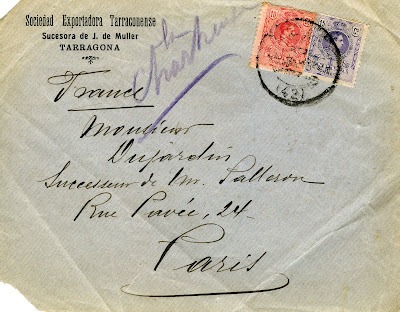 Sociedad Exportadora Tarraconense
Sucesora de J. de Muller
TARRAGONA
la
France
Monsieur
Dujardin
Successeur de M. Salleron
Rue Pavée, 24
Paris
(42)